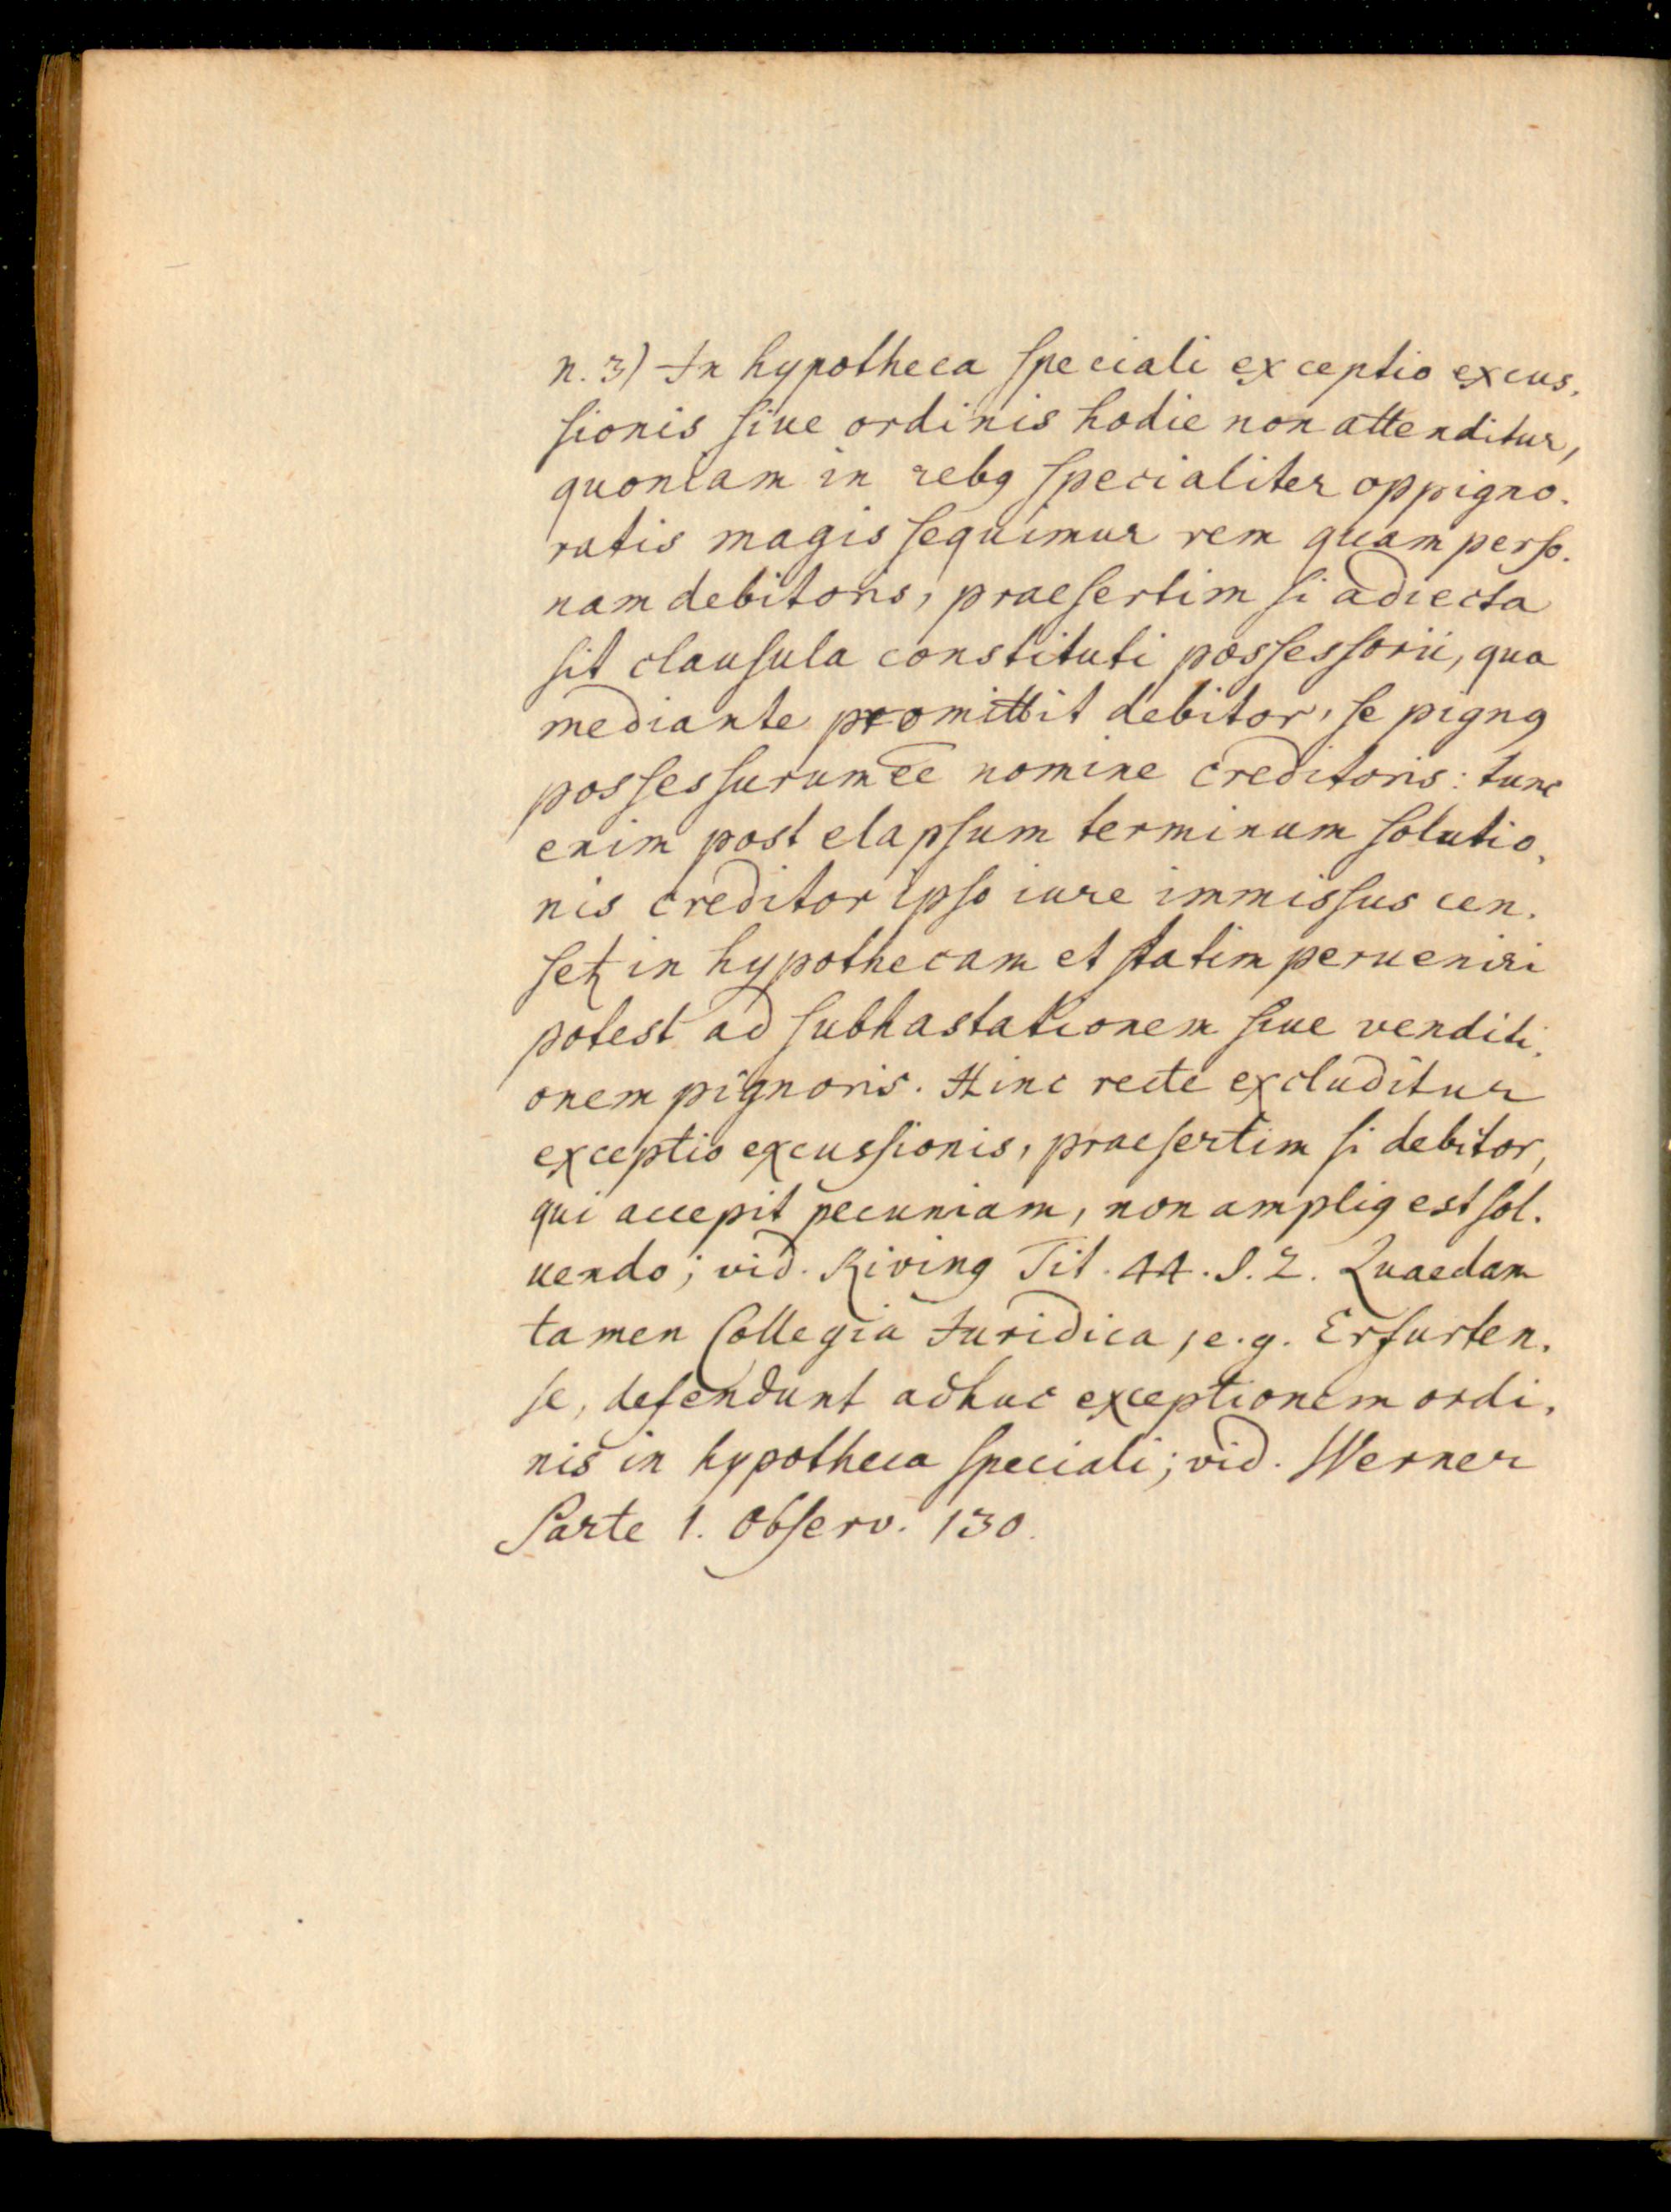 n. 3) In hypotheca ſpeciali exceptio excus.
ſionis ſiue ordinis hodie non attenditur,
quoniam in rebꝯ ſpecialiter oppigno.
ratis magis ſequimur rem quam perſo.
nam debitoris, praeſertim ſi adiecta
ſit clauſula constituti posſesſorii, qua
mediante promittit debitor, ſe pignꝯ
posſesſurum ēe nomine creditoris: tunc
enim post elapſum terminum ſolutio.
nis creditor ipſo iure immisſus cen.
ſetꝛ in hypothecam et ſtatim perueniri
potest ad ſubhastationem ſiue venditi.
onem pignoris. Hinc recte excluditur
exceptio excusſionis, praeſertim ſi debitor,
qui accepit pecuniam, non ampliꝯ est ſol.
uendo; vid. Riving Tit. 44. §. 2. Quaedam
tamen Collegia Juridica, e.g. Erfurten.
ſe, defendunt adhuc exceptionem ordi.
nis in hypotheca ſpeciali; vid. Werner
Parte 1. Obſerv. 130.